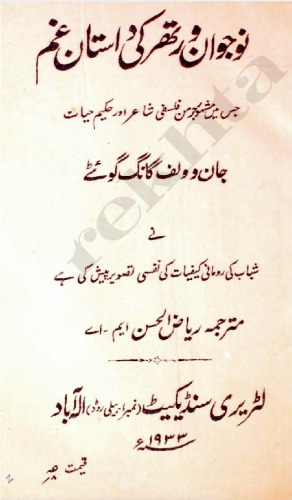 نوجوان ورتھر کی داستان غم
جس میں مشہور جرمن فلسفی شاعر اور حکیم حیات
جان وولف گانگ گوئٹے
نے
شباب کی رومانی کیفیات کی نفسی تصویر پیش کی ہے
مترجمہ ریاض الحسن ایم - اے
لٹریری سنڈیکیٹ (نمبر ۱ بیلی روڈ) الہ آباد
۱۹۳۳ء
قیمت
rekhta